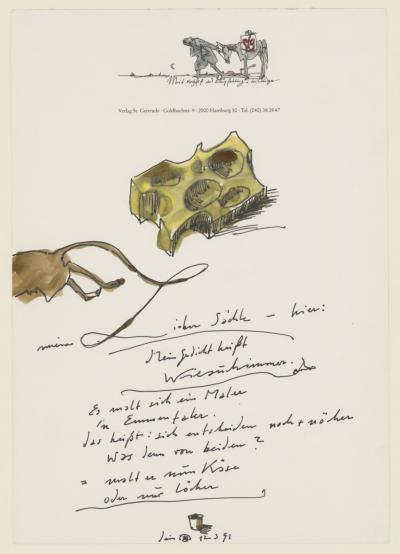 Verlag St. Gertrude · Goldbachstr. 9 · 2000 Hamburg 50 · Tel. (040) 38 28 47
meine
– hier:
Mein Gedicht heißt
Es malt sich ein Maler
'n Emmentaler.
das heißt: sich entscheiden noch + nöcher
Was denn von beiden?
= malt er nun Käse
oder nur Löcher
12 3 91